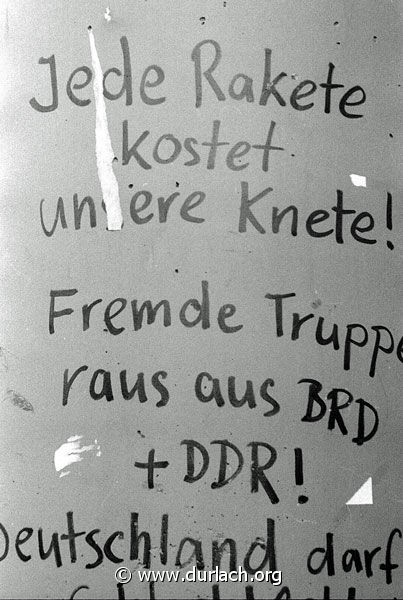 Jede Rakete
kostet
unsere Knete!
Fremde Truppe
raus aus BRD
+ DDR!
Deutschland darf
© www.durlach.org